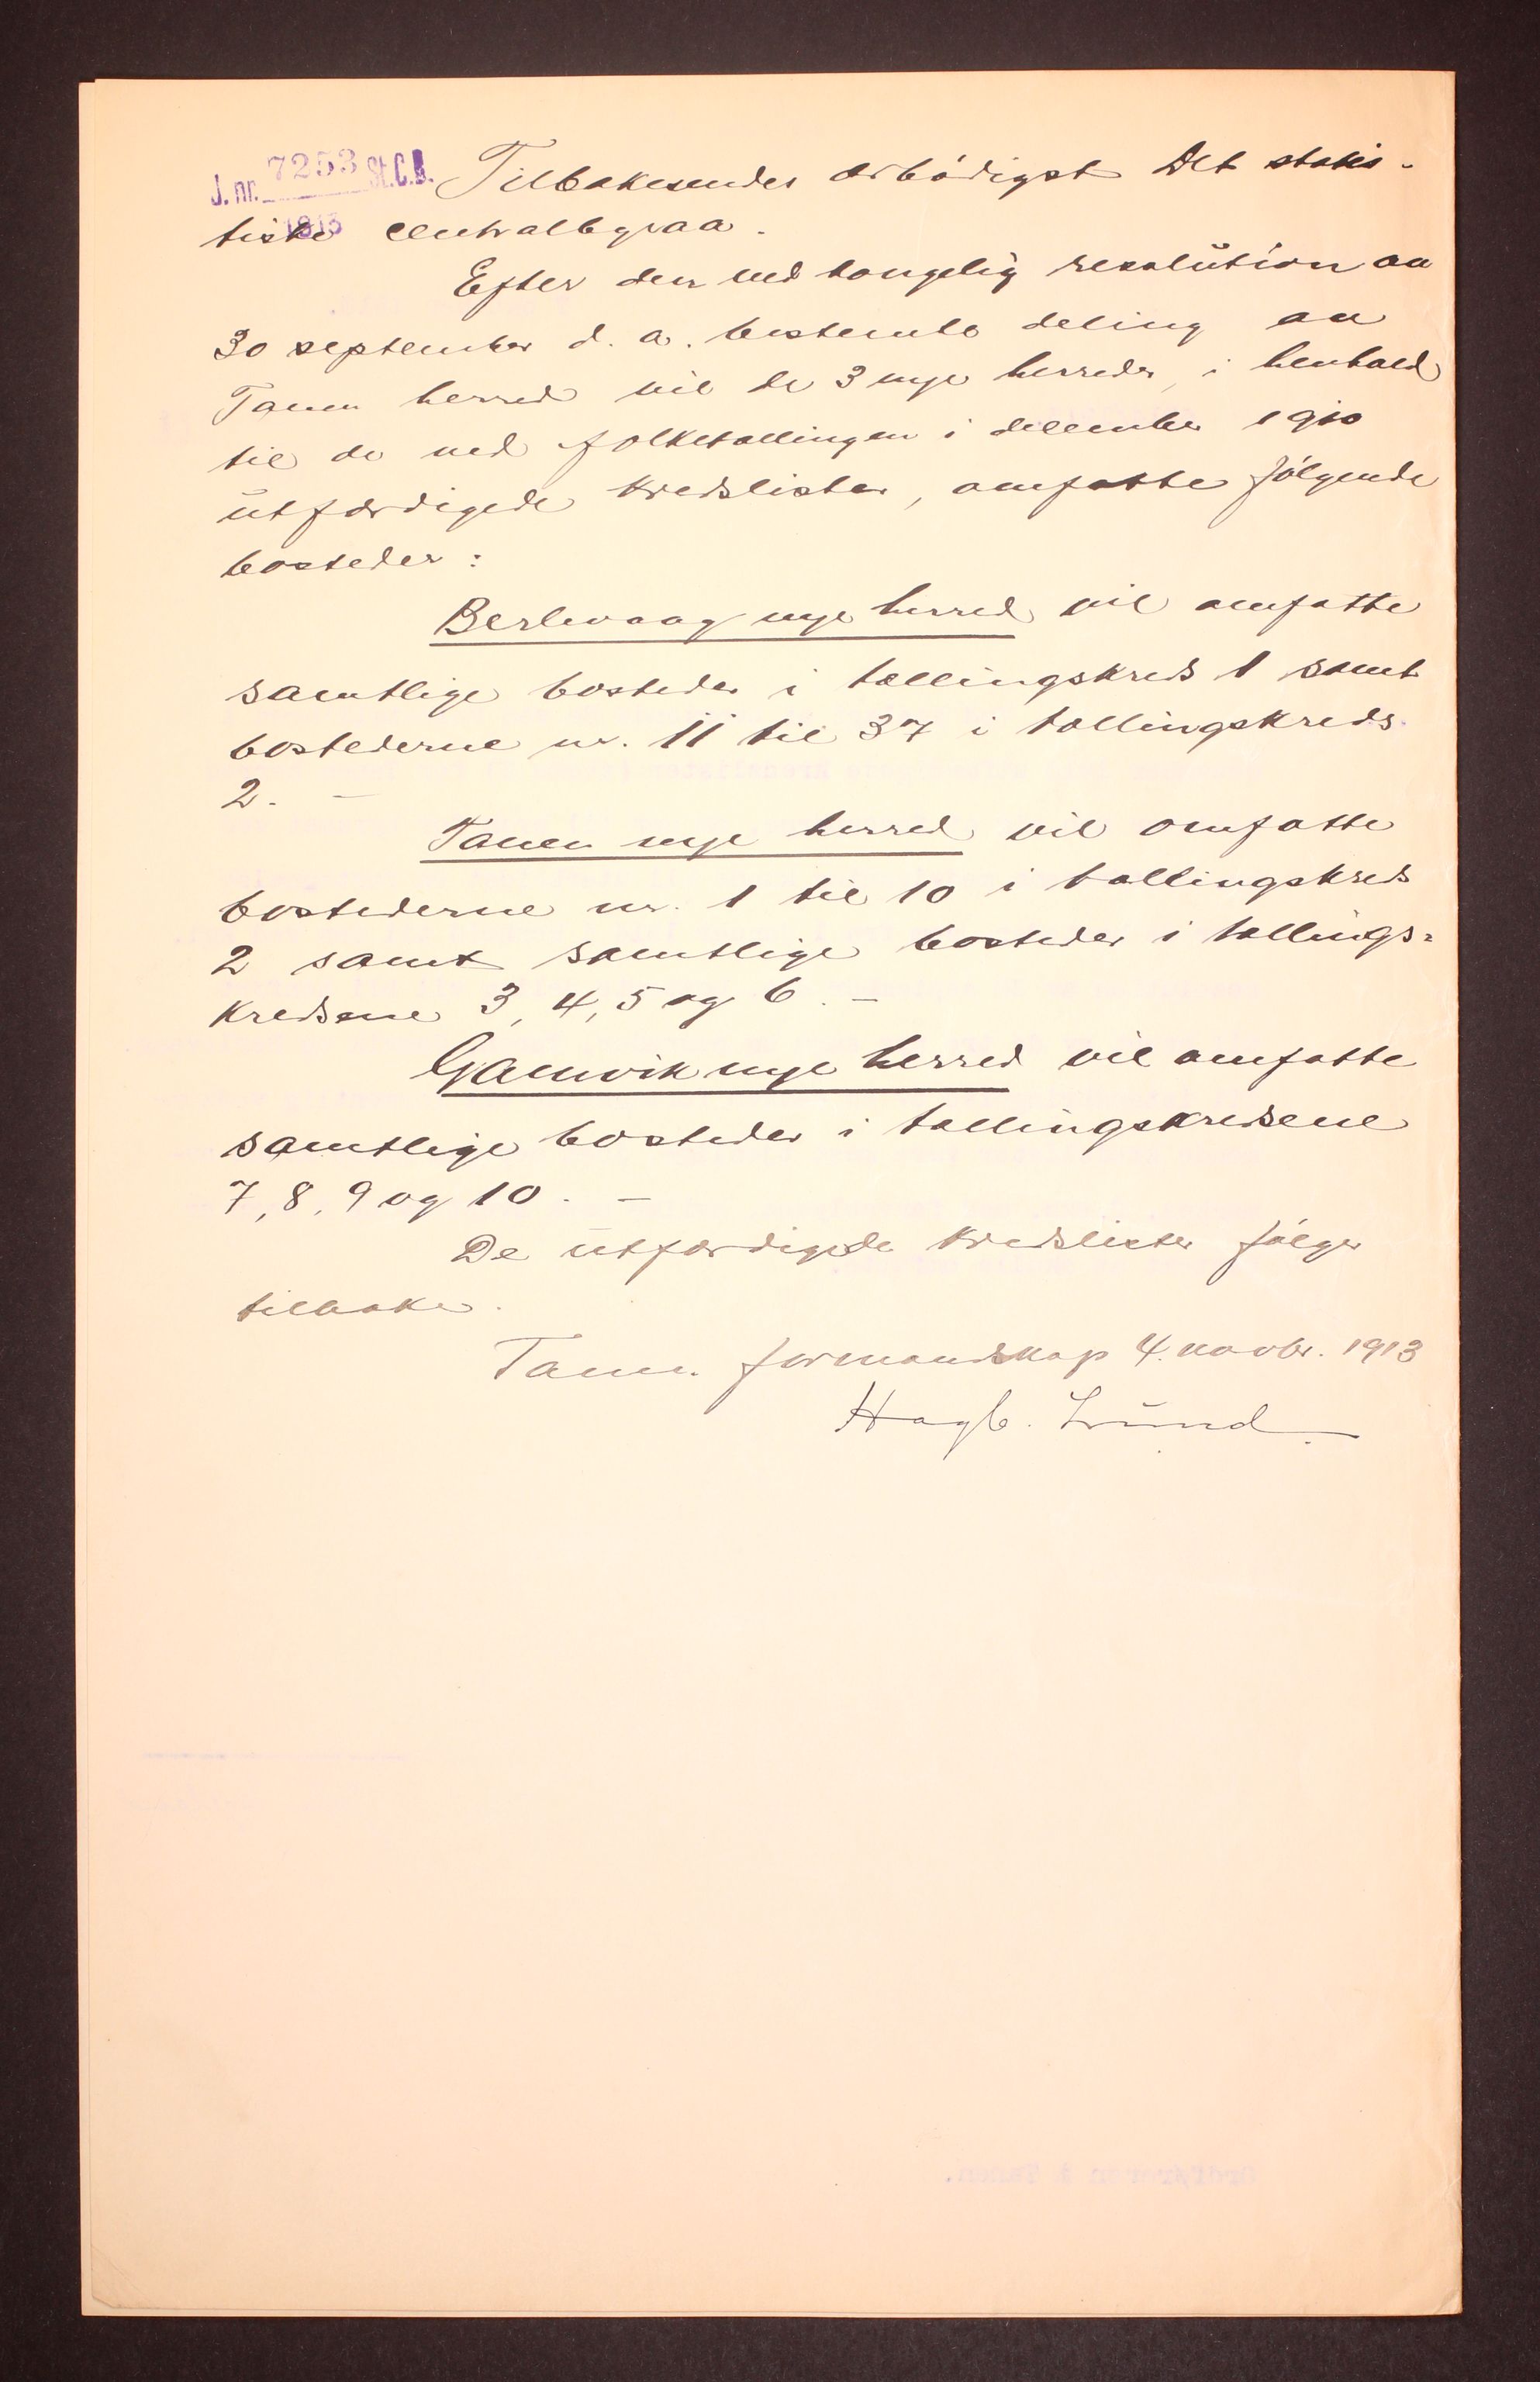 J. nr. 7253 St.C.B.
1913
Tilbakesendes ærbødigst Det statis-
tiske centralbyraa.
Efter den ved kongelig resolution av
30 september d. a. bestemte deling av
Tanen herred vil de 3 nye herreder, i henhold
til de ved folketællingen i december 1910
utfærdigede kredslister, omfatte følgende
bosteder:
Berlevaag nye herred vil omfatte
samtlige bosteder i tællingskreds 1 samt
bostederne nr. 11 til 37 i tællingskreds
2. –
Tanen nye herred vil omfatte
bostederne nr. 1 til 10 i tællingskreds
2 samt samtlige bosteder i tællings=
kredsene 3, 4, 5 og 6. –
Gamvik nye herred vil omfatte
samtlige bosteder i tællingskredsene
7, 8, 9 og 10. –
De utfærdigede kredslister følger
tilbake.
Tanen formandskap 4. novbr. 1913
Hagb. Lund.